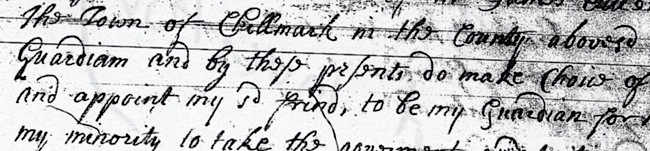 the Town of Chillmark in the County abovesd
Guardiam and by these prsents do make Choue of
and appoint my sd frind, to be my Guardian for
my minority to take the